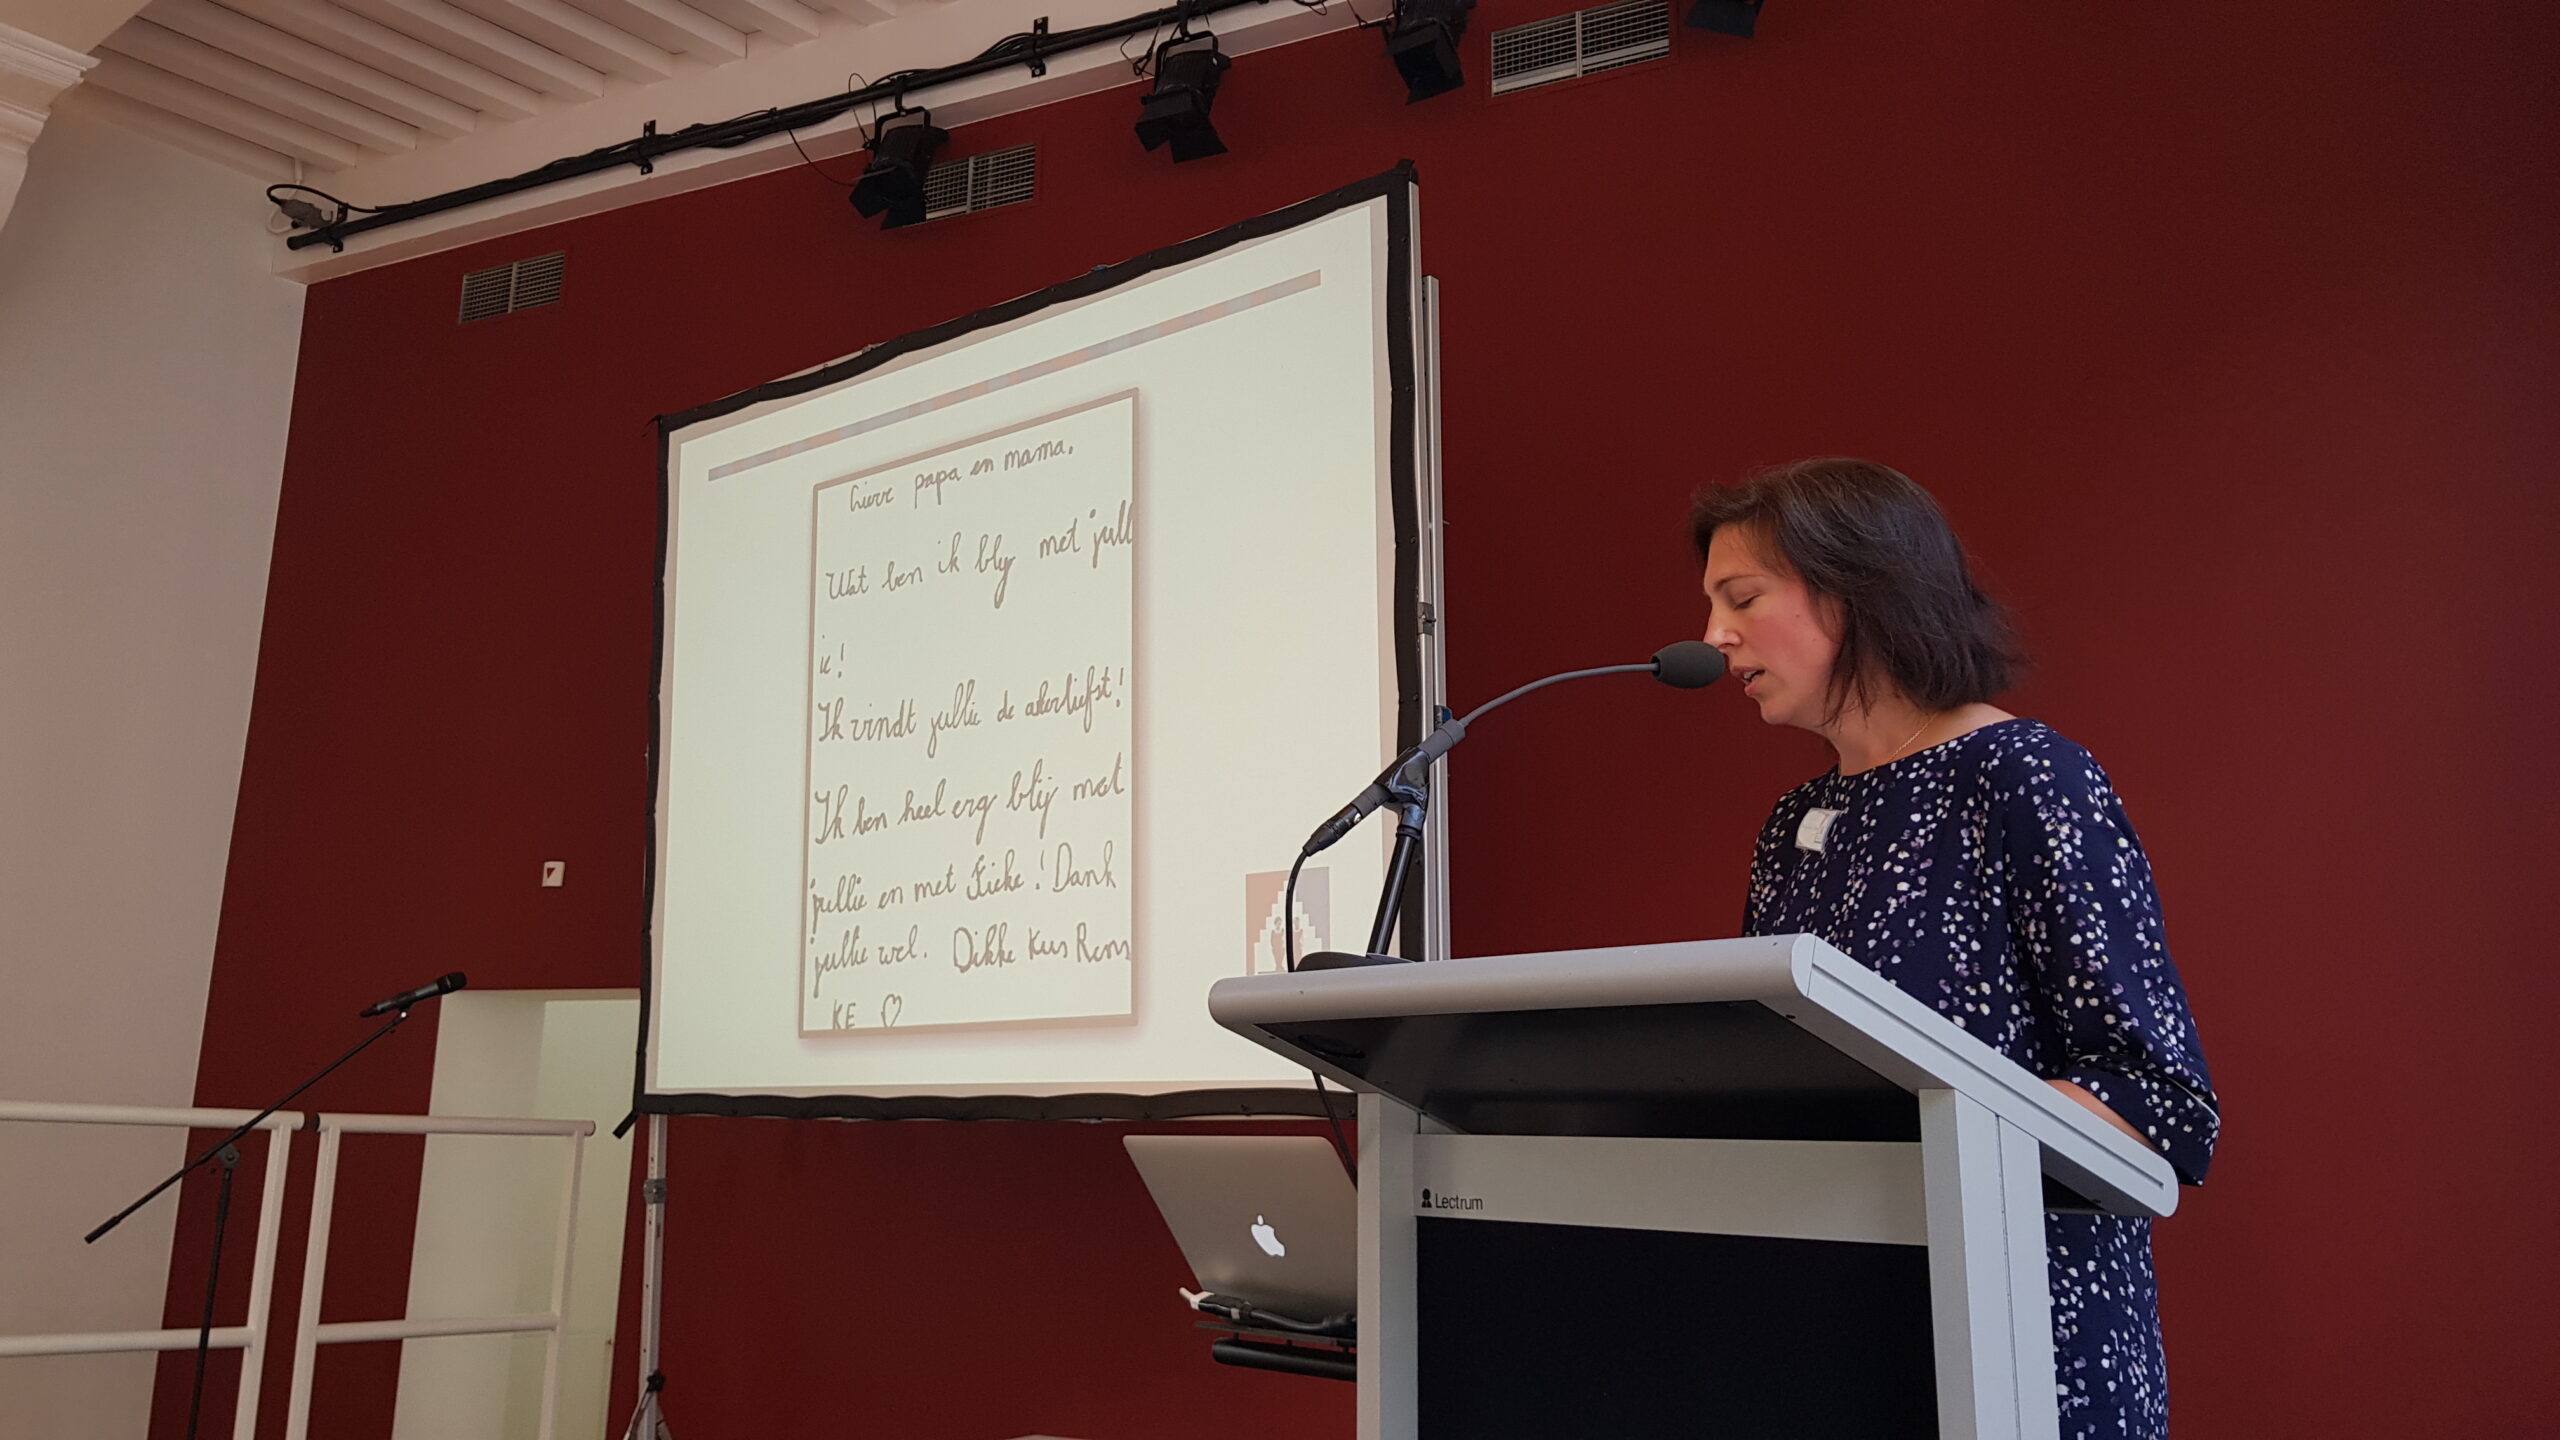 Lieve papa en mama,
Wat ben ik blij met jull
ie!
Ik vindt jullie de allerliefst!
Ik ben heel erg blij met
jullie en met Fieke! Dank
jullie wel. Dikke Kus Rens
KE ♡
Lectrum